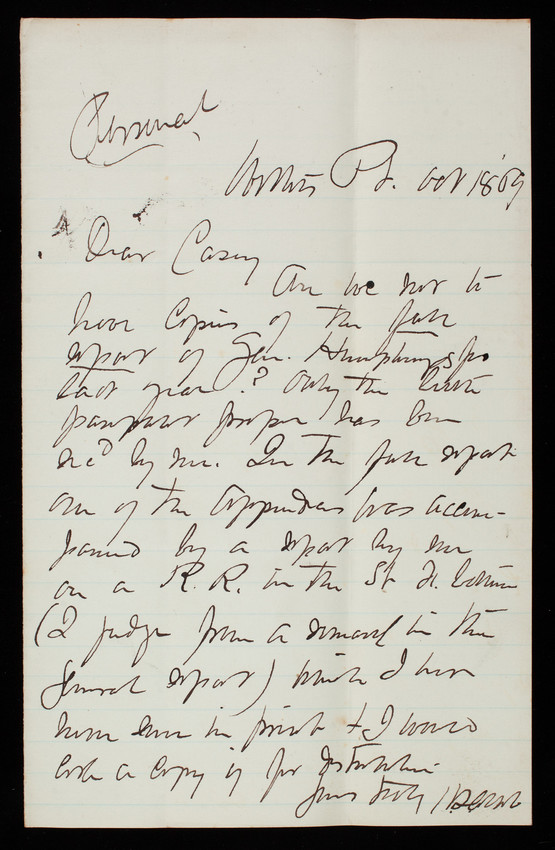 Personal
Willets Pt. Oct 18 '69
Dear Casey
Are we not to
have copies of the full
report of Gen. Humphreys for
last year? Only the little
pamphlet proper has been
rec'd by me. In the full report
one of the appendices was accom-
panied by a report by me
on a R. R. in the St
(I judge from a remark in the
General report) which I have
never seen in print & I would
like a copy if for distribution
Yours truly